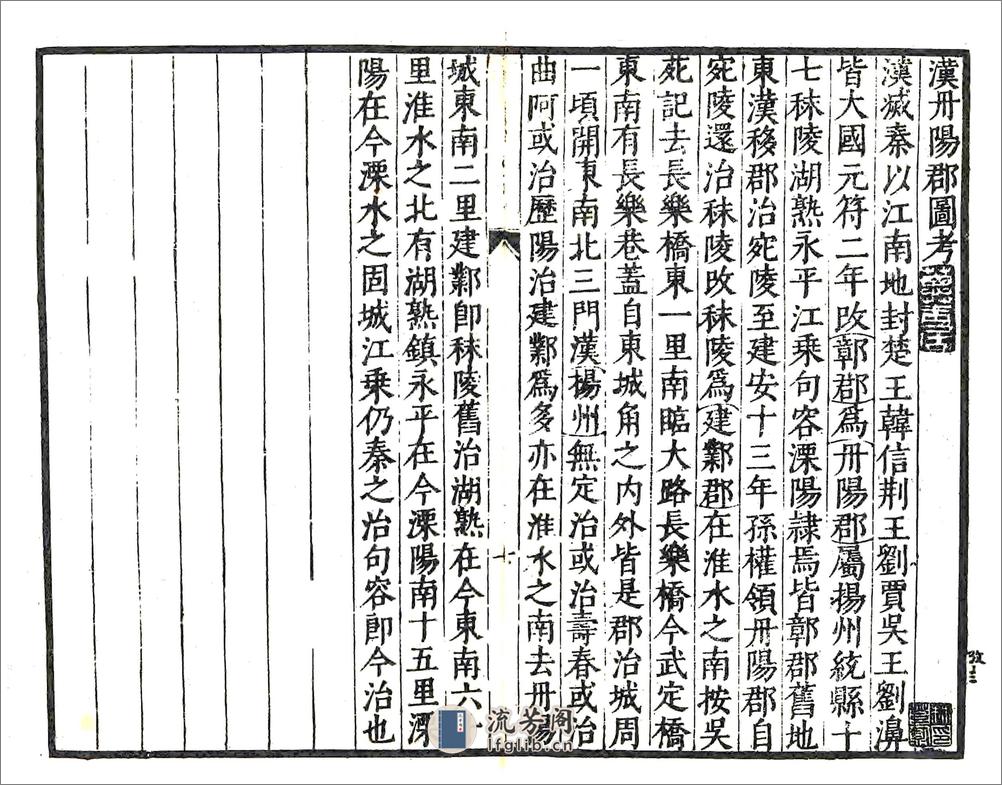 漢丹陽郡圖考
漢滅秦以江南地封楚王韓信荆王劉賈吳王劉濞
皆大國元符二年改鄣郡爲丹陽郡屬揚州統縣十
七秣陵湖熟永平江乗句容溧陽隷焉皆鄣郡舊地
東漢移郡治宛陵至建安十三年孫權領丹陽郡自
宛陵還治秣陵改秣陵爲建鄴郡在淮水之南按吳
苑記去長樂橋東一里南臨大路長樂橋今武定橋
東南有長樂巷蓋自東城角之内外皆是郡治城周
一頃開東南北三門漢揚州無定治或治壽春或治
曲阿或治歷陽治建鄴爲多亦在淮水之南去丹陽
城東南二里建鄴即秣陵舊治湖熟在今東南六十
里淮水之北有湖熟鎮永平在今溧陽南十五里溧
陽在今溧水之固城江乗仍秦之治句容即今治也
十
流芳閣
lfglib.cn